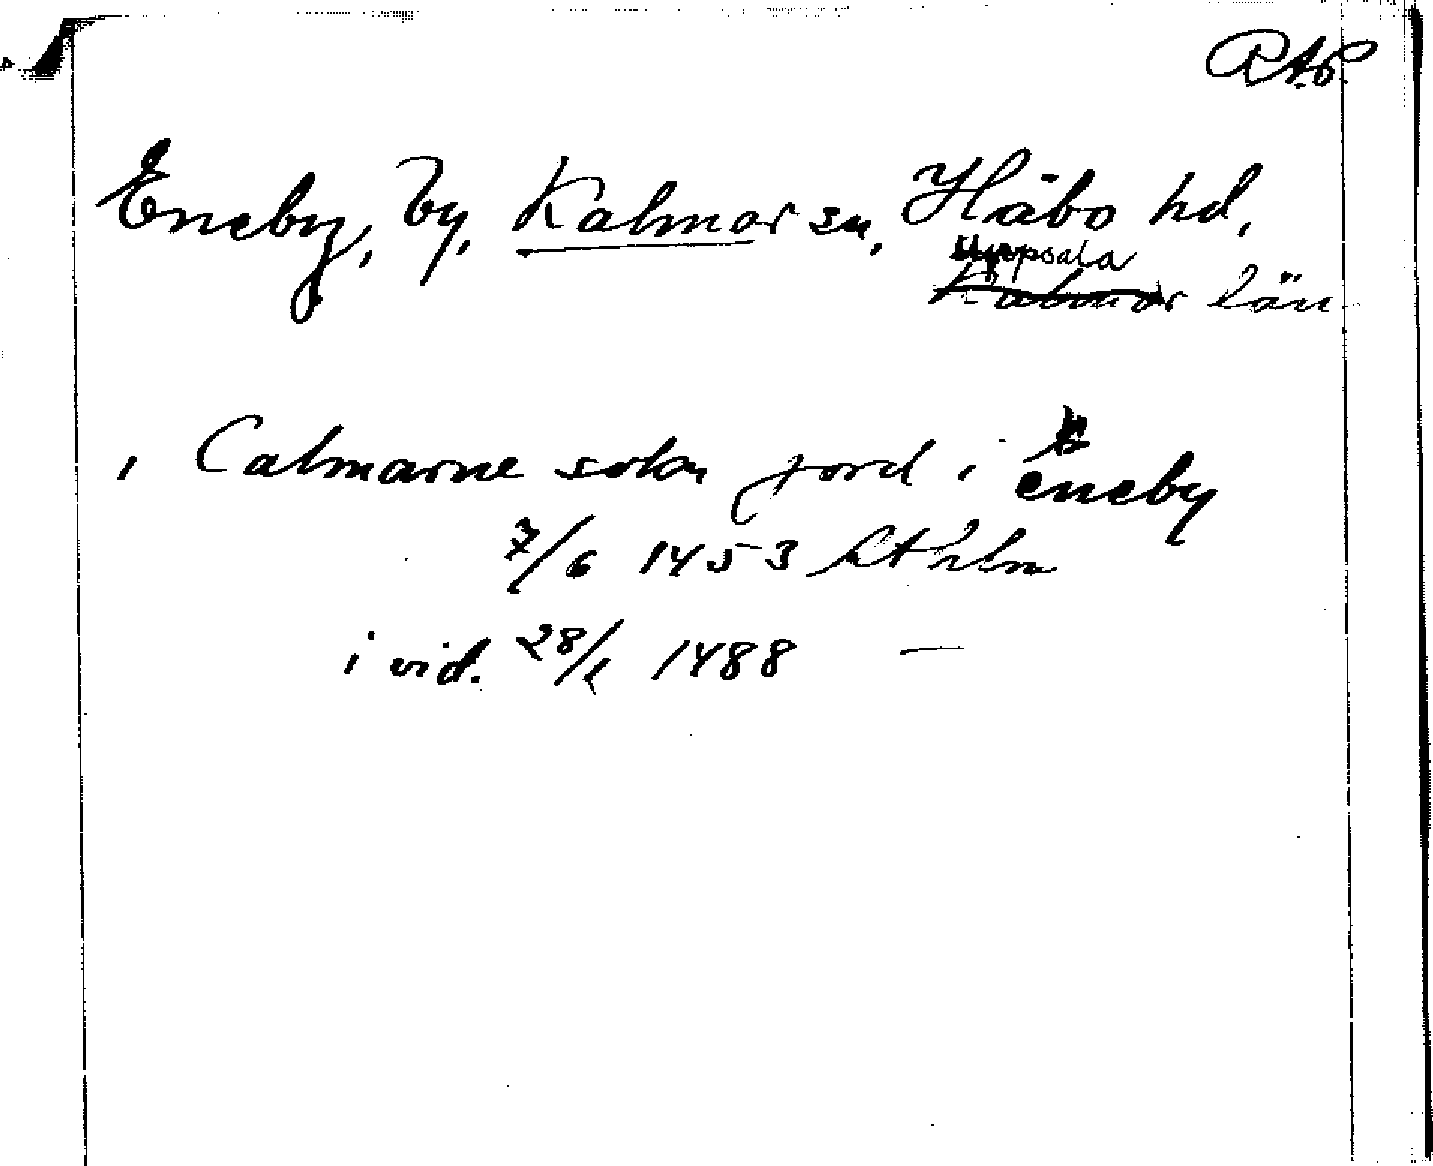 RAP.
Eneby, by, Kalmar sn, Håbo hd,
Uppsala
Kalmar län
i Calmarne sokn jord i eneby
7/6 1453 Sthlm
i vid. 28/1 1488 —